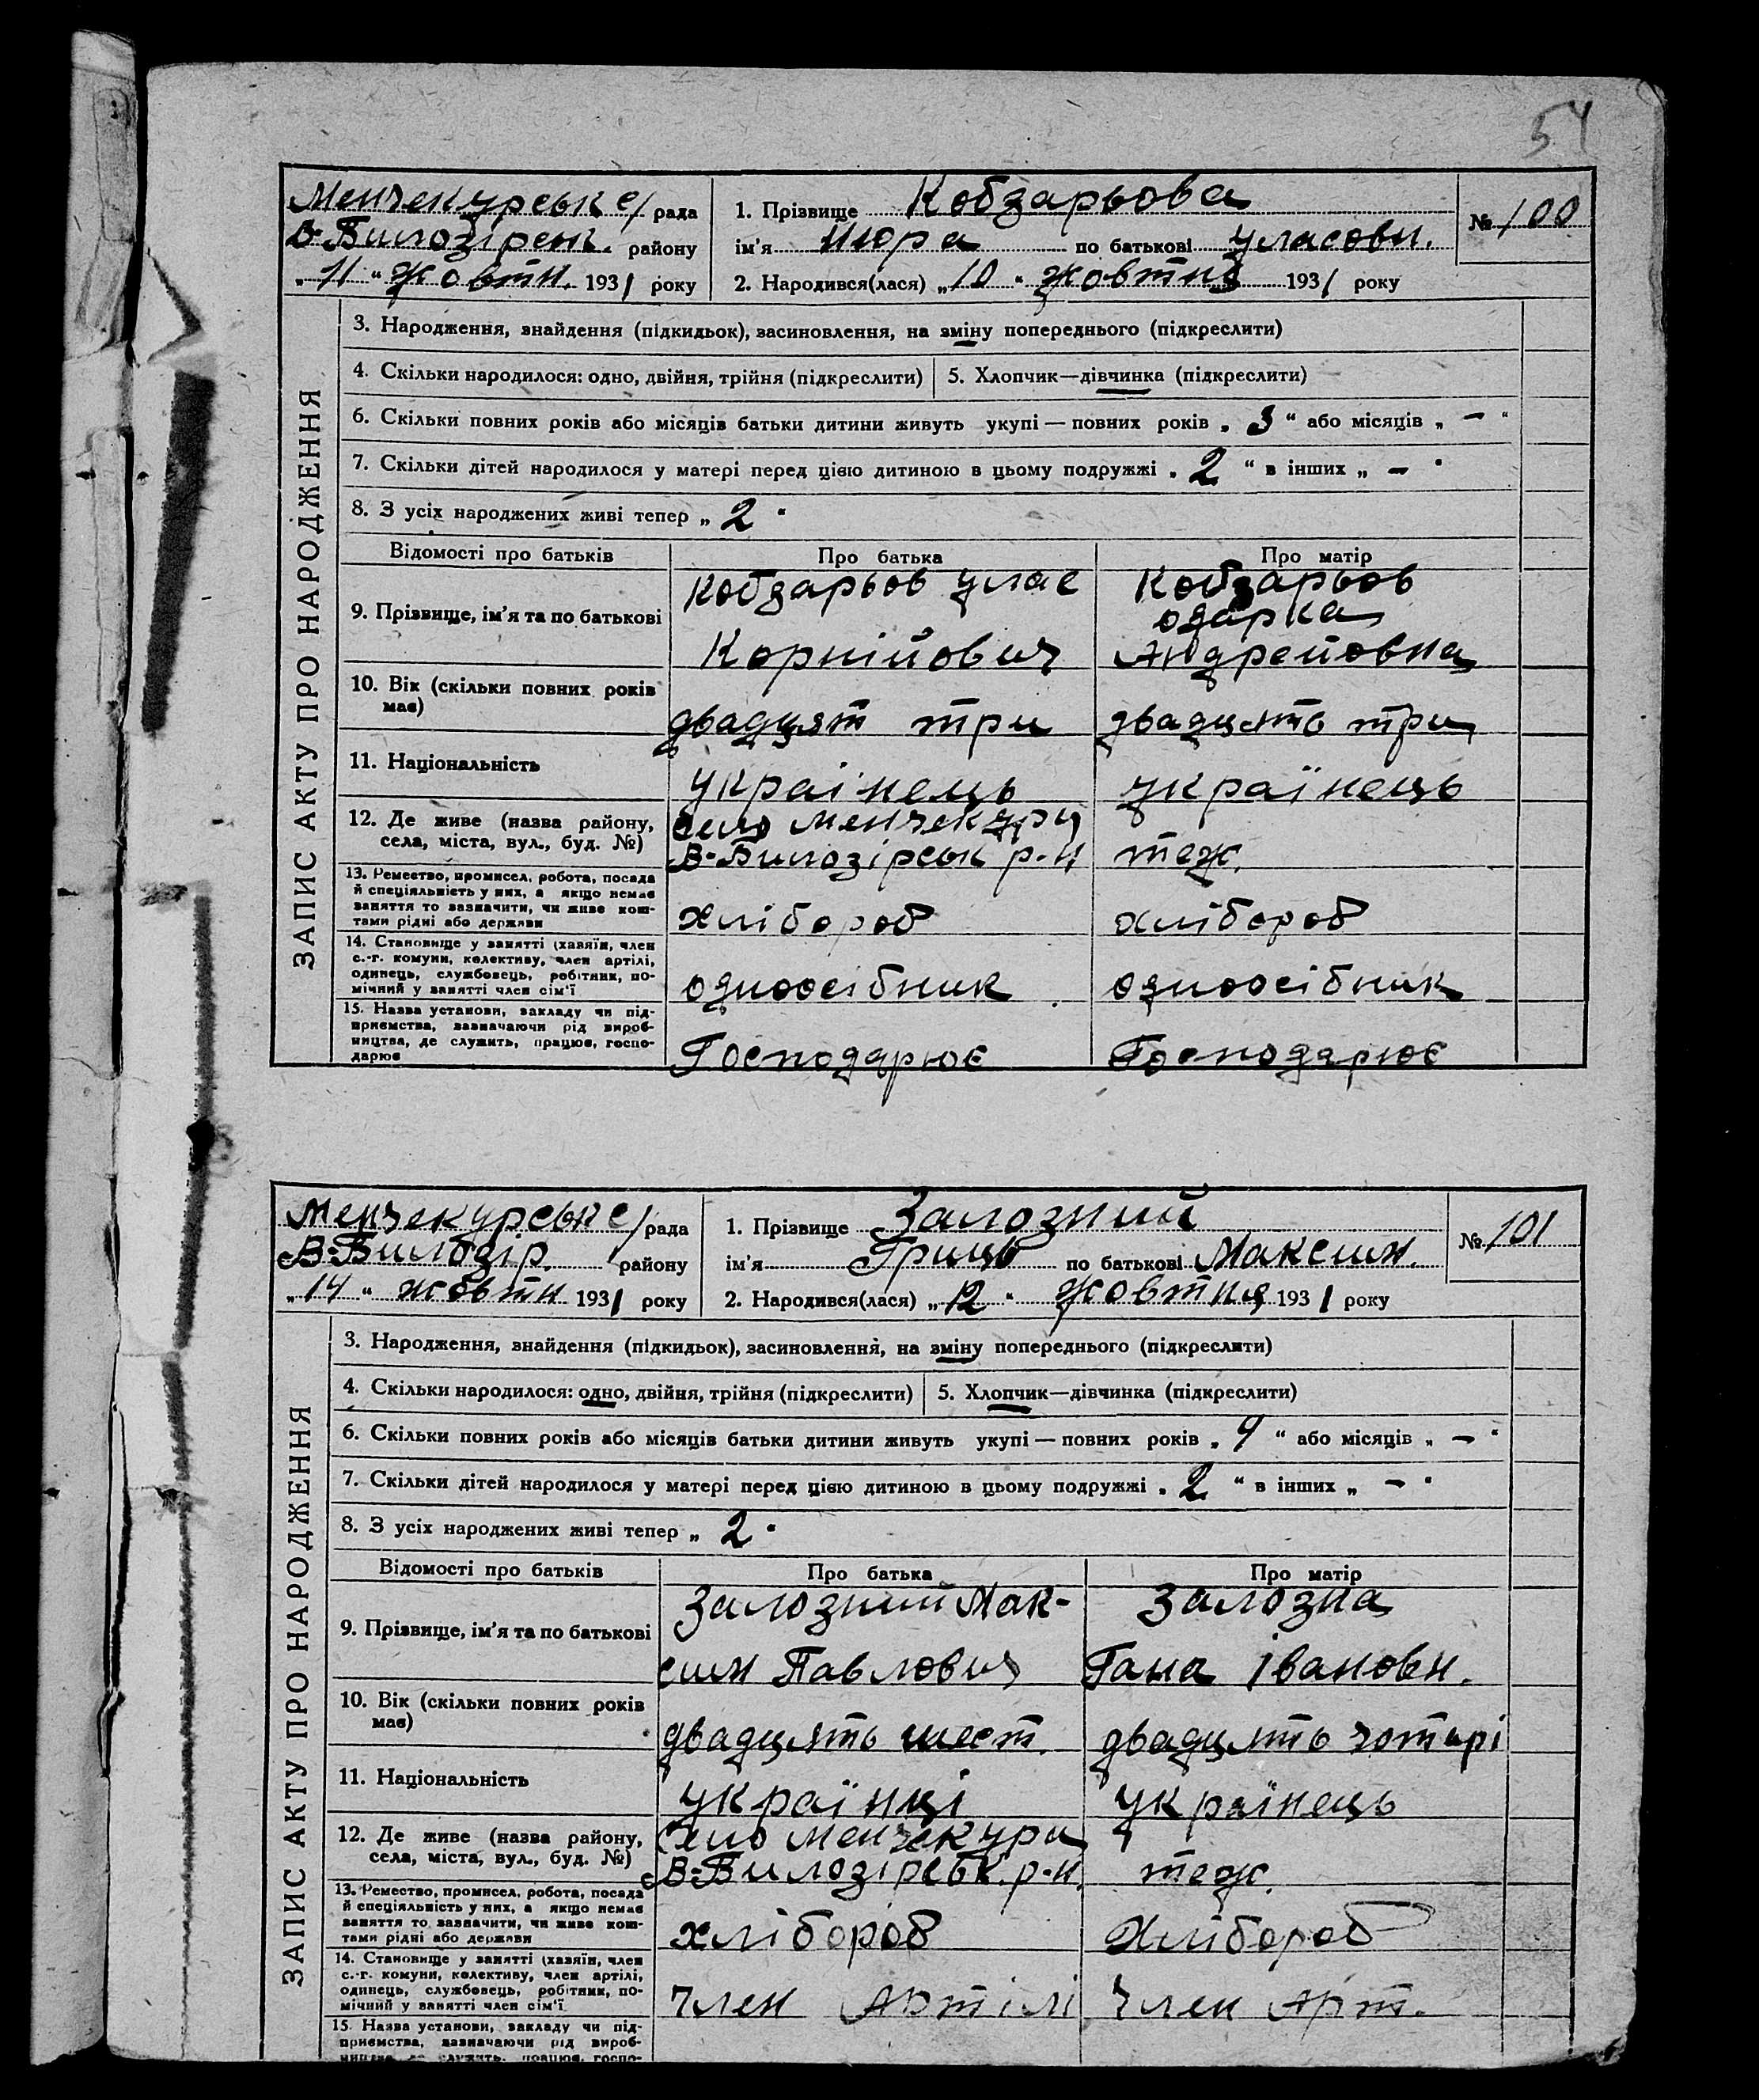 54
Менчекурське/ рада
В-Билозірськ. району
„11“ Жовтн. 1931 року
1. Прізвище Кобзарьова
ім'я Нюра по батькові Уласовн.
2. Народився(лася) „10“ жовтня 1931 року
№ 100
ЗАПИС АКТУ ПРО НАРОДЖЕННЯ
3. Народження, знайдення (підкидьок), засиновлення, на зміну попереднього (підкреслити)
4. Скільки народилося: одно, двійня, трійня (підкреслити)
5. Хлопчик—дівчинка (підкреслити)
6. Скільки повних років або місяців батьки дитини живуть укупі — повних років „3“ або місяців „—“
7. Скільки дітей народилося у матері перед цією дитиною в цьому подружжі „2“ в інших „—“
8. З усіх народжених живі тепер „2“
Відомості про батьків
Про батька
Про матір
9. Прізвище, ім'я та по батькові
Кобзарьов Улас
Корнійович
Кобзарьов
одарка
Андрейовна
10. Вік (скільки повних років
має)
двадцят три
двадцять три
11. Національність
українець
українець
12. Де живе (назва району,
села, міста, вул., буд. №)
село Менчекури
В-Билозірськ р-н
теж.
13. Ремество, промисел, робота, посада
й спеціяльність у них, а якщо немає
заняття то зазначити, чи живе кош-
тами рідні або держави
хлібороб
хлібороб
14. Становище у занятті (хазяїн, член
с.-г. комуни, колективу, член артілі,
одинець, службовець, робітник, по-
мічний у занятті член сім'ї
одноосібник
одноосібник
15. Назва установи, закладу чи під-
приємства, зазначаючи рід вироб-
ництва, де служить, працює, госпо-
дарює
Господарює
Господарює
Менчекурське/ рада
В-Билозір. району
„14“ жовтн 1931 року
1. Прізвище Залозний
ім'я Гриць по батькові Максим.
2. Народився(лася) „12“ жовтня 1931 року
№ 101
ЗАПИС АКТУ ПРО НАРОДЖЕННЯ
3. Народження, знайдення (підкидьок), засиновлення, на зміну попереднього (підкреслити)
4. Скільки народилося: одно, двійня, трійня (підкреслити)
5. Хлопчик—дівчинка (підкреслити)
6. Скільки повних років або місяців батьки дитини живуть укупі — повних років „4“ або місяців „—“
7. Скільки дітей народилося у матері перед цією дитиною в цьому подружжі „2“ в інших „—“
8. З усіх народжених живі тепер „2“
Відомості про батьків
Про батька
Про матір
9. Прізвище, ім'я та по батькові
Залозний Мак-
сим Павлович
Залозна
Гана Івановн.
10. Вік (скільки повних років
має)
двадцять шест.
двадцять чотирі
11. Національність
українці
українець
12. Де живе (назва району,
села, міста, вул., буд. №)
Село Менчекури
В-Билозірськ. р-н.
теж.
13. Ремество, промисел, робота, посада
й спеціяльність у них, а якщо немає
заняття то зазначити, чи живе кош-
тами рідні або держави
хлібороб
Хлібороб
14. Становище у занятті (хазяїн, член
с.-г. комуни, колективу, член артілі,
одинець, службовець, робітник, по-
мічний у занятті член сім'ї
Член Артілі
Член Арт.
15. Назва установи, закладу чи під-
приємства, зазначаючи рід вироб-
ництва, де служить, працює, госпо-